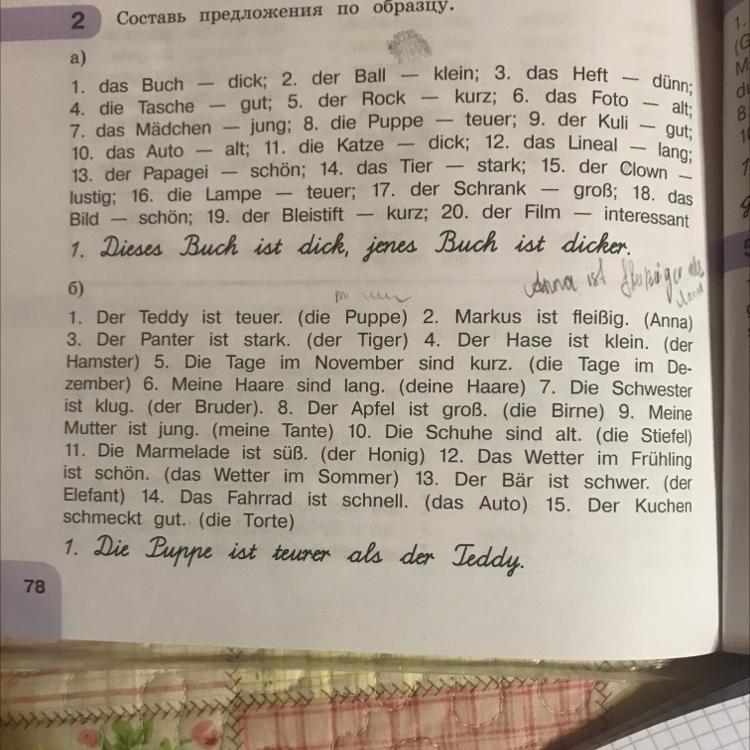 2 Составь предложения по образцу.
а)
1. das Buch — dick; 2. der Ball — klein; 3. das Heft — dünn;
4. die Tasche — gut; 5. der Rock — kurz; 6. das Foto — alt;
7. das Mädchen — jung; 8. die Puppe — teuer; 9. der Kuli — gut;
10. das Auto — alt; 11. die Katze — dick; 12. das Lineal — lang;
13. der Papagei — schön; 14. das Tier — stark; 15. der Clown —
lustig; 16. die Lampe — teuer; 17. der Schrank — groß; 18. das
Bild — schön; 19. der Bleistift — kurz; 20. der Film — interessant
1. Dieses Buch ist dick, jenes Buch ist dicker.
Anna ist als
б)
1. Der Teddy ist teuer. (die Puppe) 2. Markus ist fleißig. (Anna)
3. Der Panter ist stark. (der Tiger) 4. Der Hase ist klein. (der
Hamster) 5. Die Tage im November sind kurz. (die Tage im De-
zember) 6. Meine Haare sind lang. (deine Haare) 7. Die Schwester
ist klug. (der Bruder). 8. Der Apfel ist groß. (die Birne) 9. Meine
Mutter ist jung. (meine Tante) 10. Die Schuhe sind alt. (die Stiefel)
11. Die Marmelade ist süß. (der Honig) 12. Das Wetter im Frühling
ist schön. (das Wetter im Sommer) 13. Der Bär ist schwer. (der
Elefant) 14. Das Fahrrad ist schnell. (das Auto) 15. Der Kuchen
schmeckt gut. (die Torte)
1. Die Puppe ist teurer als der Teddy.
78